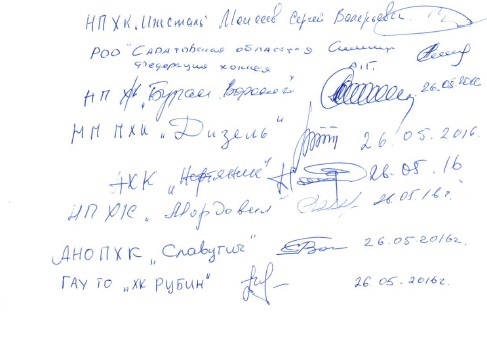 НП ХК "Ижсталь" Моисеев Сергей Валерьевич
РОО "Саратовская областная
федерация хоккея А.Г.
НП ХК "Буран Воронеж" 26.05.2016
НП ПХК "Дизель" 26.05.2016.
АХК "Нефтяник" 26.05.16
НП ХК "Мордовия" 26.05.16г.
АНО ПХК "Славутич" 26.05.2016г.
ГАУ ТО "ХК РУБИН" 26.05.2016г.